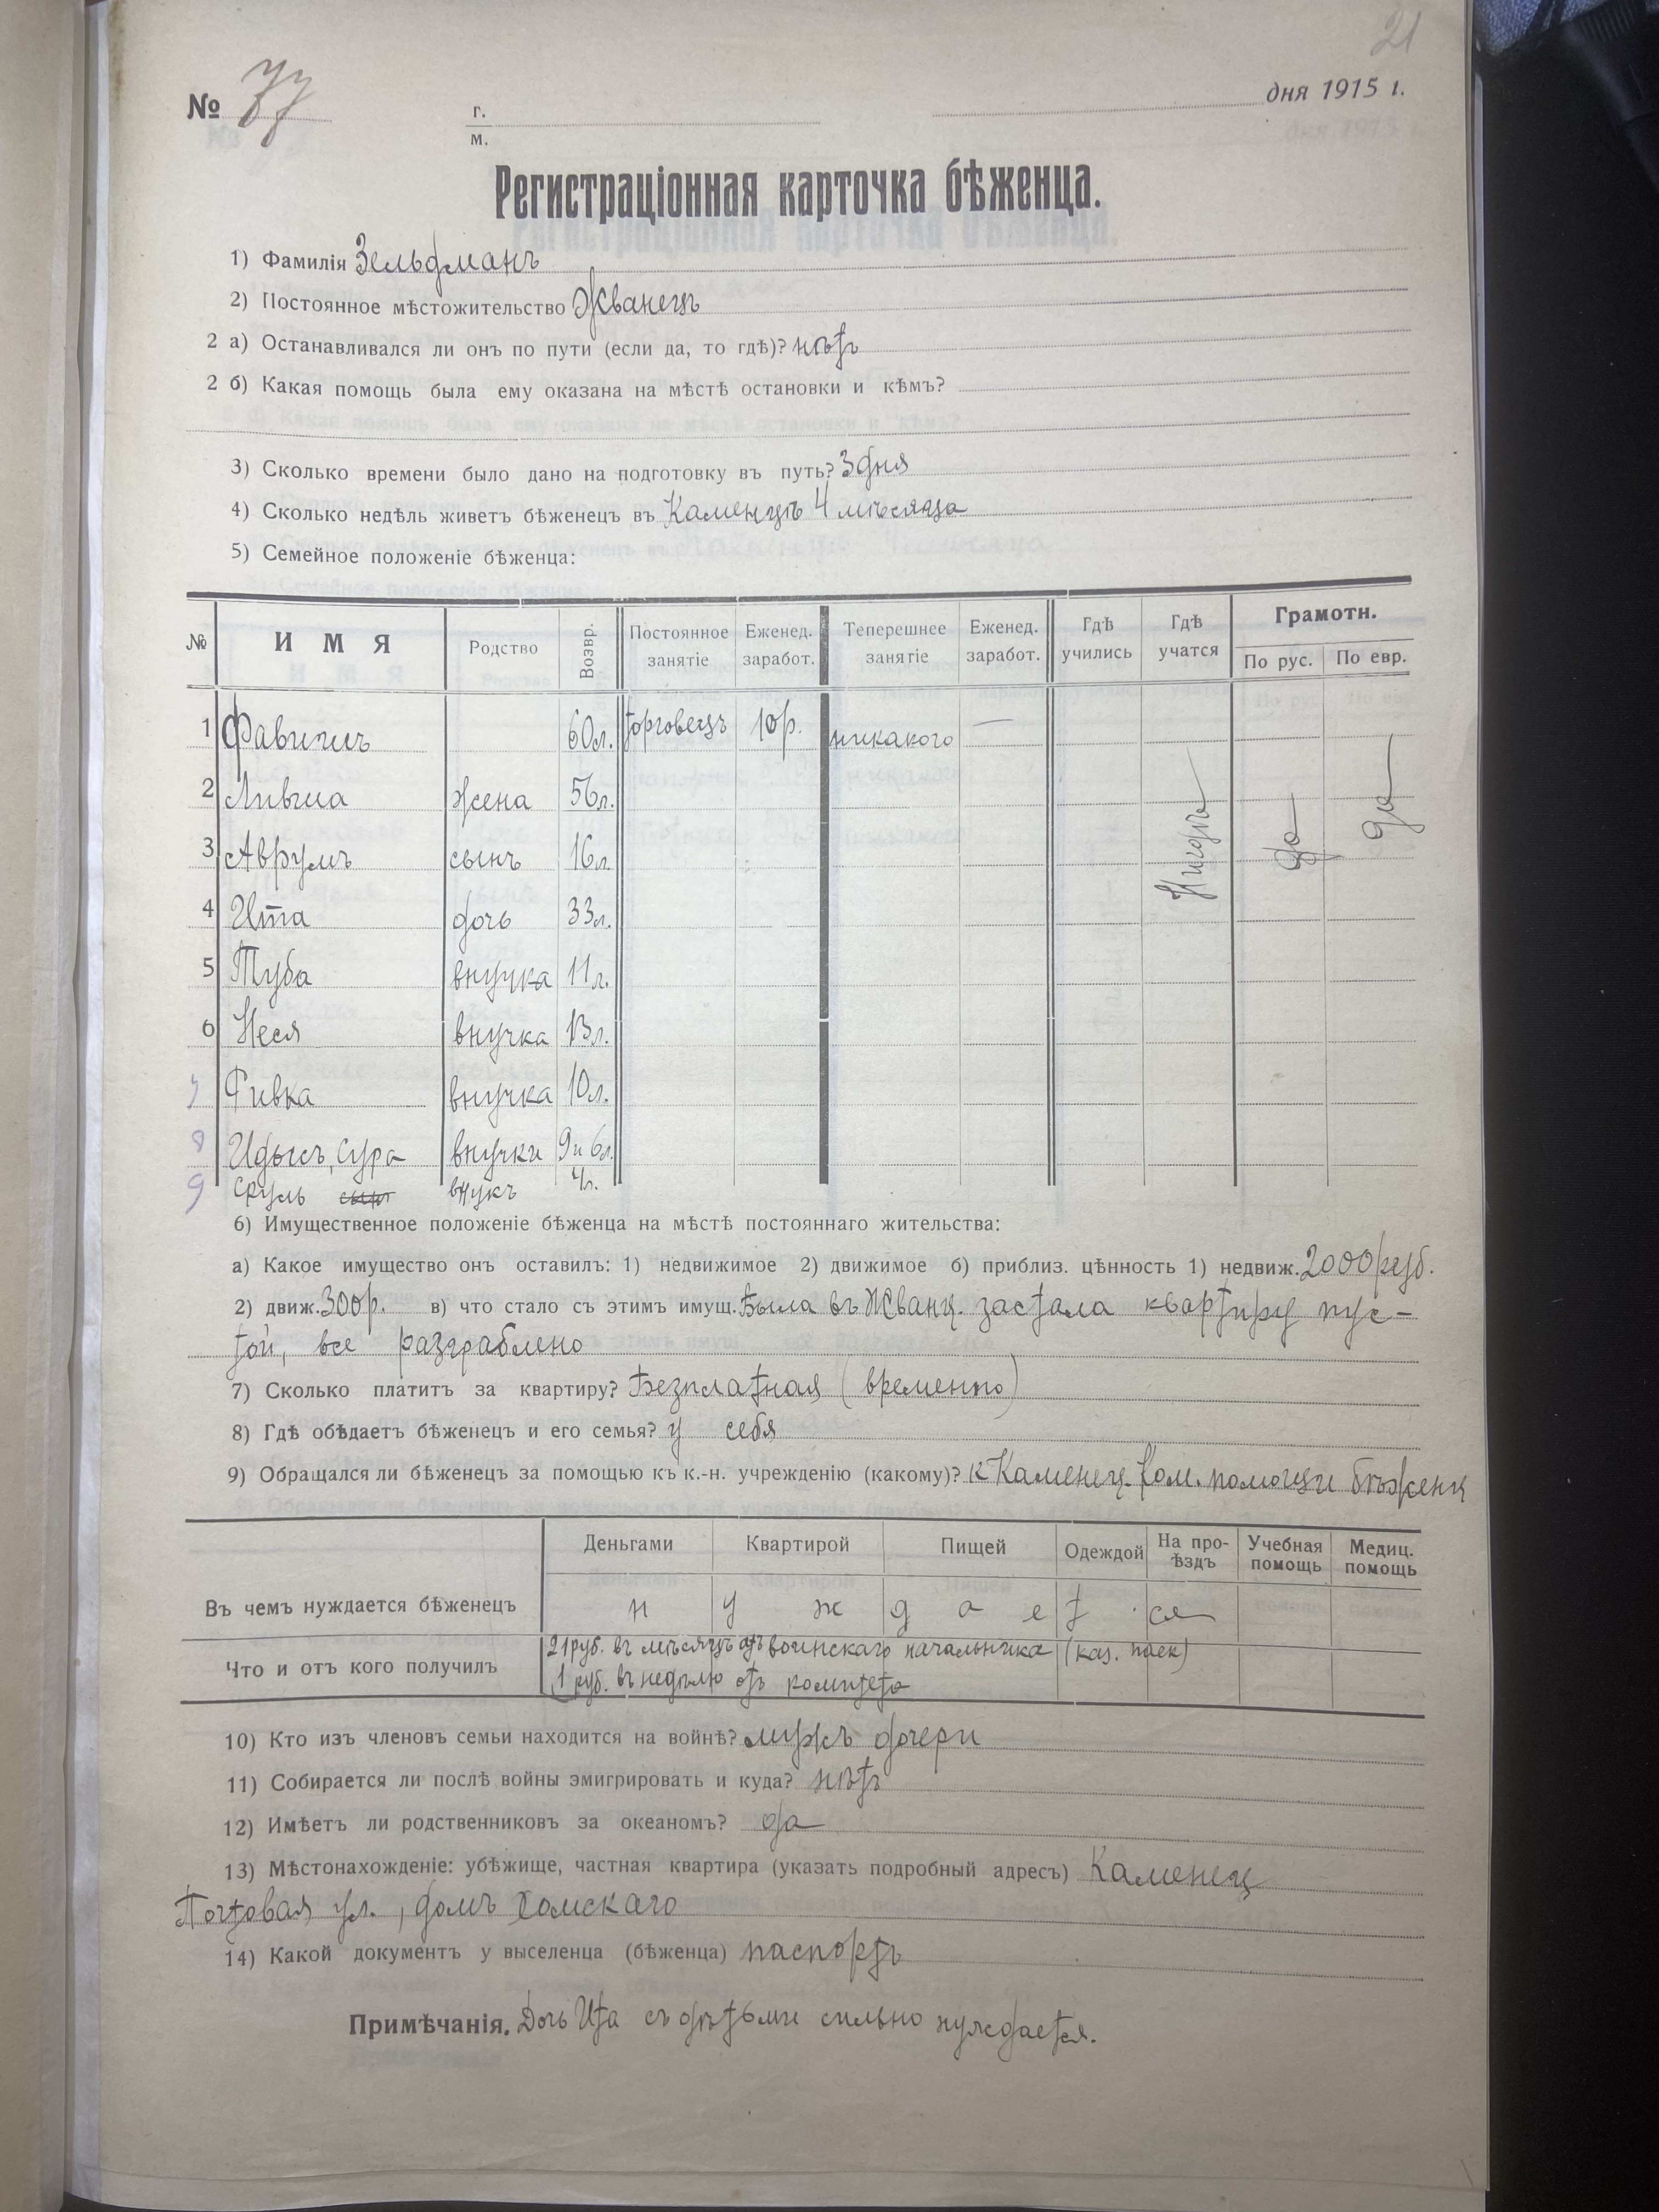 21
№ 77
г.
м.
дня 1915 г.
Регистраціонная карточка бѣженца.
1) Фамилія Зельфманъ
2) Постоянное мѣстожительство Жванецъ
2 а) Останавливался ли онъ по пути (если да, то гдѣ)? нѣтъ
2 б) Какая помощь была ему оказана на мѣстѣ остановки и кѣмъ?
3) Сколько времени было дано на подготовку въ путь? 3 дня
4) Сколько недѣль живетъ бѣженецъ въ Каменцѣ 4 мѣсяца
5) Семейное положеніе бѣженца:
№ ИМЯ Родство Возвр. Постоянное занятіе Еженед. заработ. Теперешнее занятіе Еженед. заработ. Гдѣ учились Гдѣ учатся Грамотн. По рус. По евр.
1 60л. торговецъ 10р. никакого —
2 Ливша жена 56л.
3 Аврумъ сынъ 16л.
4 Ита дочь 33л.
5 Туба внучка 11л.
6 Неся внучка 13л.
7 Ривка внучка 10л.
8 Идысъ, Сура внучки 9 и 6л.
9 Сруль сынъ внукъ 4л.
Нигдѣ да да
6) Имущественное положеніе бѣженца на мѣстѣ постояннаго жительства:
а) Какое имущество онъ оставилъ: 1) недвижимое 2) движимое б) приблиз. цѣнность 1) недвиж. 2000 руб.
2) движ. 300р. в) что стало съ этимъ имущ. Была въ Жванц. застала квартиру пус-
той, все разграблено
7) Сколько платитъ за квартиру? Безплатная (временно)
8) Гдѣ обѣдаетъ бѣженецъ и его семья? у себя
9) Обращался ли бѣженецъ за помощью къ к.-н. учрежденію (какому)? к Каменец. Ком. помощи бѣженц
Деньгами Квартирой Пищей Одеждой На про-ѣздъ Учебная помощь Медиц. помощь
Въ чемъ нуждается бѣженецъ н у ж д а е т ся
Что и отъ кого получилъ 21 руб. въ мѣсяцъ отъ воинскаго начальника (каз. паек)
1 руб. въ недѣлю отъ комитета
10) Кто изъ членовъ семьи находится на войнѣ? мужъ дочери
11) Собирается ли послѣ войны эмигрировать и куда? нѣтъ
12) Имѣетъ ли родственниковъ за океаномъ? да
13) Мѣстонахожденіе: убѣжище, частная квартира (указать подробный адресъ) Каменец
Почтовая ул., домъ Хомскаго
14) Какой документъ у выселенца (бѣженца) паспортъ
Примѣчанія. Дочь Ита съ дѣтьми сильно нуждается.